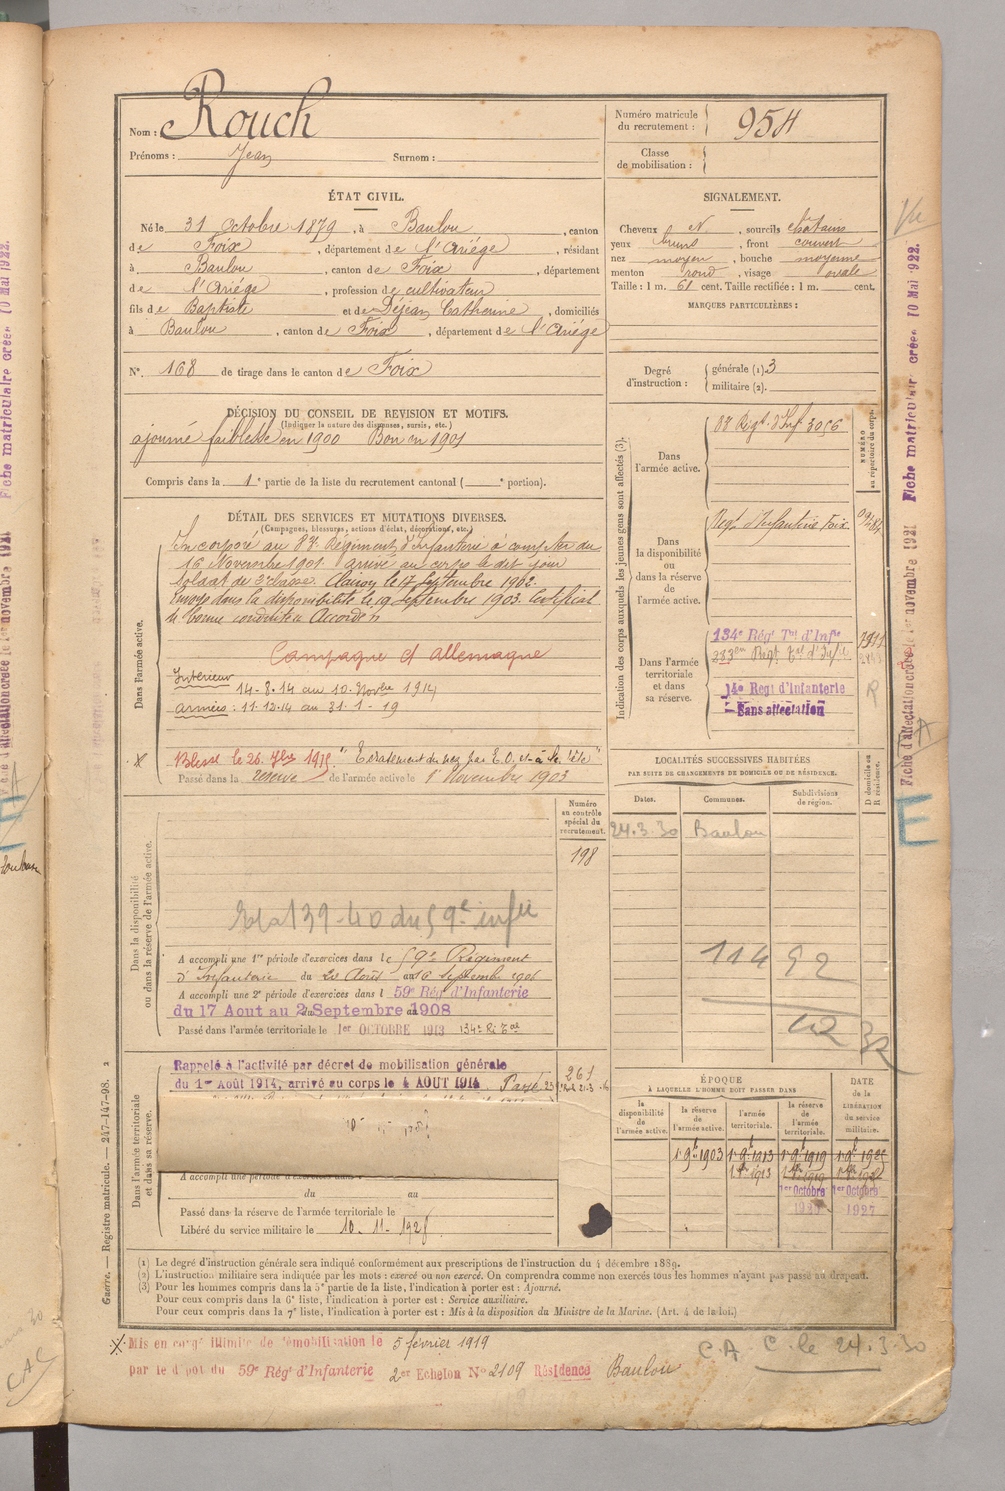 Nom : Rouch
Prénoms : Jean Surnom :
Numéro matricule du recrutement : 954
Classe de mobilisation :
ÉTAT CIVIL.
Né le 31 Octobre 1879, à Baulou, canton
de Foix, département de l'Ariége, résidant
à Baulou, canton de Foix, département
de l'Ariége, profession de cultivateur
fils de Baptiste et de Déjean Catherine, domiciliés
à Baulou, canton de Foix, département de l'Ariége
N°. 168 de tirage dans le canton de Foix
SIGNALEMENT.
Cheveux et, sourcils chatains
yeux bruns, front couvert
nez moyen, bouche moyenne
menton rond, visage ovale
Taille : 1 m. 61 cent. Taille rectifiée : 1 m. cent.
MARQUES PARTICULIÈRES :
Degré d'instruction : générale (1). 3
militaire (2).
DÉCISION DU CONSEIL DE REVISION ET MOTIFS.
(Indiquer la nature des dispenses, sursis, etc.)
ajourné faiblesse en 1900 Bon en 1901
Compris dans la 1e partie de la liste du recrutement cantonal ( e portion).
DÉTAIL DES SERVICES ET MUTATIONS DIVERSES.
(Campagnes, blessures, actions d'éclat, décorations, etc.)
Dans l'armée active.
Incorporé au Régiment d'Infanterie à compter du
16 Novembre 1901. arrivé au corps le dit jour
Soldat de classe. le 17 Septembre 1902.
Envoyé dans la disponibilité le 19 Septembre 1903. Certificat
de bonne conduite Accordé
Campagne ct allemagne
Intérieur
14-8-14 au 10 Novbre 1914
armées : 11-12-14 au 31-1-19
Blessé le 26 7bre 1915 " du nez par E.O. et à la tête "
Passé dans la reserve de l'armée active le 1er Novembre 1903
Indication des corps auxquels les jeunes gens sont affectés (3).
NUMÉRO au répertoire du corps.
Dans l'armée active.
Regt d'Inf. 3056
Dans la disponibilité ou dans la réserve de l'armée active.
Regt d'Infanterie Foix
Dans l'armée territoriale et dans sa réserve.
134e Rég Tal d'Infie
Regt Tal d'Infie
14e Regt d'Infanterie
Sans affectation
R
LOCALITÉS SUCCESSIVES HABITÉES
PAR SUITE DE CHANGEMENTS DE DOMICILE OU DE RÉSIDENCE.
Dates. Communes. Subdivisions de région. D domicile ou R résidence.
24.3.30 Baulou
Numéro au contrôle spécial du recrutement.
198
Dans la disponibilité ou dans la réserve de l'armée active.
139-40 du 59e infie
A accompli une 1re période d'exercices dans le 59e Régiment
d'Infanterie du 20 Aout au 16 Septembre 1906
A accompli une 2e période d'exercices dans l 59e Rég d'Infanterie
du 17 Aout au 2 Septembre 1908
Passé dans l'armée territoriale le 1er OCTOBRE 1913 134e Ri Tal
114 92
Dans l'armée territoriale et dans sa réserve.
Rappelé à l'activité par décret de mobilisation générale
du 1er Août 1914, arrivé au corps le 4 AOUT 1914 Passé
261
A accompli une période d'exercices dans
du au
Passé dans la réserve de l'armée territoriale le
Libéré du service militaire le 10. 11 - 1928
ÉPOQUE
À LAQUELLE L'HOMME DOIT PASSER DANS
la disponibilité de l'armée active. la réserve de l'armée active. l'armée territoriale. la réserve de l'armée territoriale. DATE de la LIBÉRATION du service militaire.
1er 9bre 1903 1er 9bre 1913 1er 9bre 1919
1er Octobre 1er Octobre
1927
Guerre. — Registre matricule. — 247-147-98. 2
(1) Le degré d'instruction générale sera indiqué conformément aux prescriptions de l'instruction du 4 décembre 1889.
(2) L'instruction militaire sera indiquée par les mots : exercé ou non exercé. On comprendra comme non exercés tous les hommes n'ayant pas passé au drapeau.
(3) Pour les hommes compris dans la 5e partie de la liste, l'indication à porter est : Ajourné.
Pour ceux compris dans la 6e liste, l'indication à porter est : Service auxiliaire.
Pour ceux compris dans la 7e liste, l'indication à porter est : Mis à la disposition du Ministre de la Marine. (Art. 4 de la loi.)
Mis en congé illimité de démobilisation le 5 février 1919
par le dépot du 59e Rég d'Infanterie 2e Echelon No 2109 Résidence Baulou
C.A. C. le 24-3-30
Fiche d'affectation créée le 1er novembre 1921
Fiche matriculaire créée 10 Mai 1922.
E